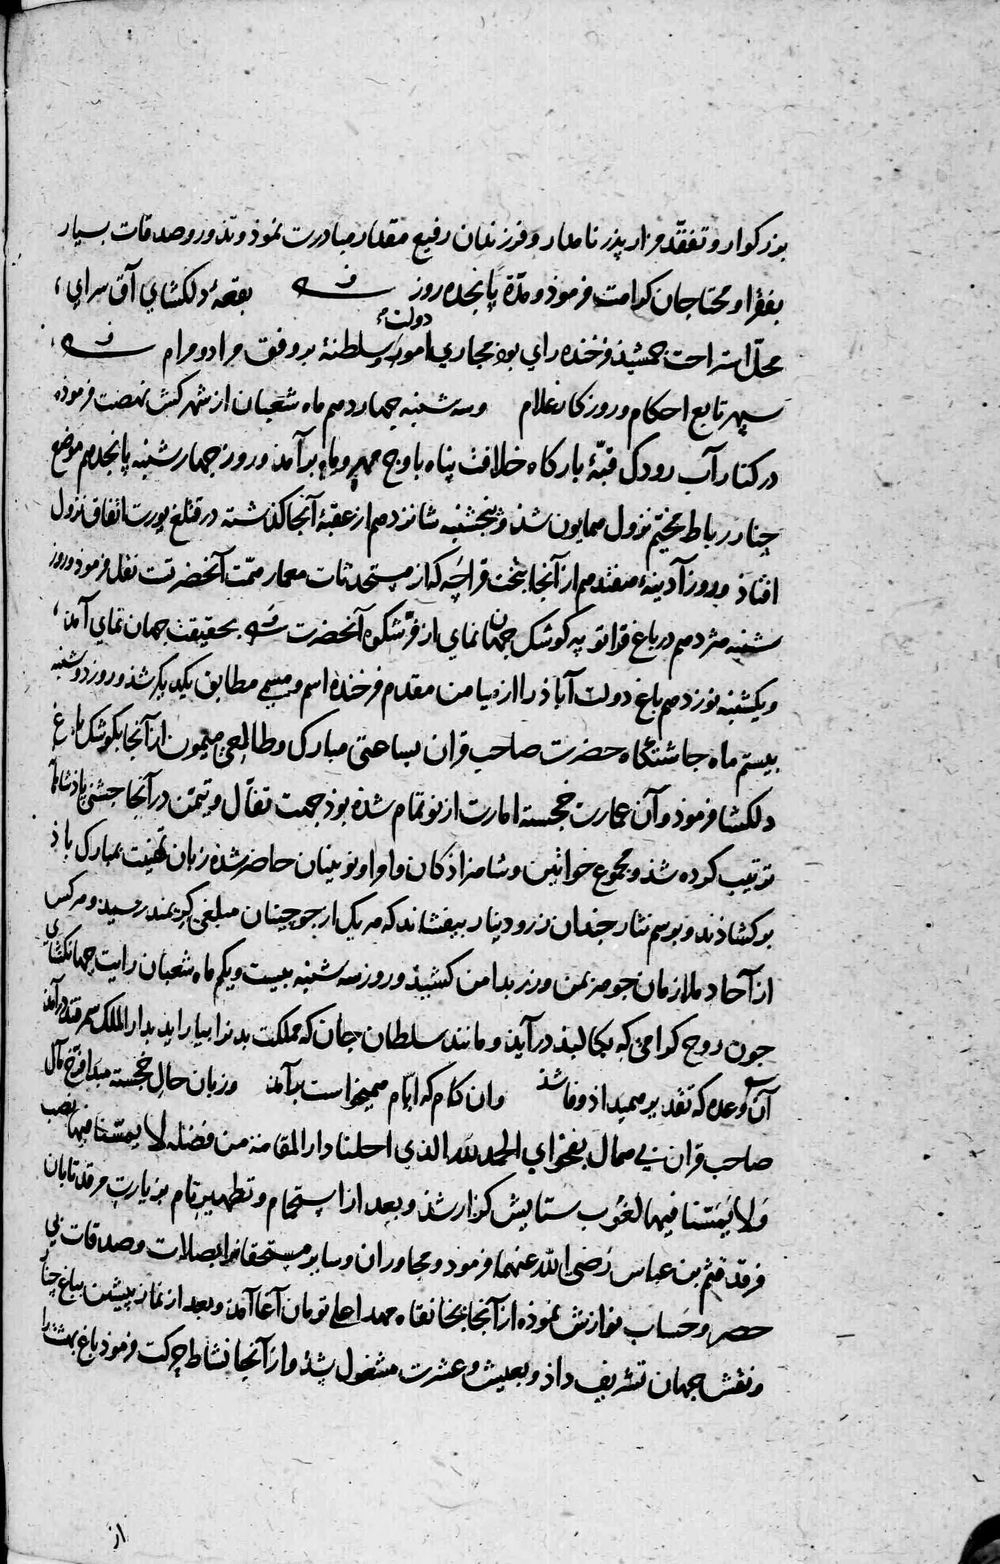 بزرکوار و تفقّد مزار پذر نامدار و فرزندان رفیع مقدار مبادرت نموذ و نذور و صدقات بسیار
بفقرا و محتاجان کرامت فرموذ و مدّة پانجده روز بقعهٔ دلکشای آق سرای
محلّ استراحت جمشیذ فرخنده رای بوذ مجاری امور دولت و سلطنة بر وفق مراد و مرام
سپهر تابع احکام و روزکار غلام وسه شنبه چهاردهم ماه شعبان از شهر کش نهضت فرموذه
در کنار آب رودک قبّهٔ بارکاه خلافت پناه باوج مهر و ماه برآمذ و روز چهارشنبه پانجدهم موضع
چنار رباط مخیّم نزول همایون شذ و پنجشنبه شانزدهم از عقبهٔ آنجا کذشته در قتلغ یورت اتفاق نزول
افتاذ و روز آدینهٔ هفدهم از آنجا بتخت قراچه که از مستحدثات معمار همّت آنحضرتست نقل فرموذ و روز
شنبه هژدهم در باغ قراتوپه کوشک جهان نمای از فرّ شکوه آنحضرت بحقیقت جهان نمای آمذ
و یکشنبه نوزدهم باغ دولت آباذ را از میامن مقدم فرخنده اسم و مسمی مطابق یکدیکر شذ و روز دوشنبه
بیستم ماه چاشتکاه حضرت صاحب قران بساعتی مبارک و طالعی میمون از آنجا بکوشک باغ
دلکشا فرموذ و آن عمارت خجسته امارت از نو تمام شذه بوذ جهت تفأل و تیمّن در آنجا جشنی پاذشاهانه
ترتیب کرده شذ و مجموع خواتین و شاهزاذکان و امرا و نوینان حاضر شذه زبان تهنیت بمبارک باذ
برکشاذند و برسم نثار چندان زر و دینار بیفشاندکه هر یک از جو چینان مبلغی بهرمند رسید و هرکس
از آحاد ملازمان جوهر بمن و زر بدامن کشیذ و روز سه شنبه بیست و یکم ماه شعبان رایت جهانکشای
چون روح کرامی که بکالبذ درآیذ و مانند سلطان جان که مملکت بدنرا بیاراید بدار الملک سمرقند درآمذ
آن وعده که تقدیر همیداذ وفا شذ وان کام که ایام همیخواست برآمذ و زبان حال خجسته مبدا فرّخ مآل
صاحب قران بی همال بفحوای الحمد لله الذی احلنا دار المقامة من فضله لا یمسّنا فیها نصب
وَلا یَمَسّنا فیها لغُوب ستایش کزار شذ و بعد از استحمام و تطهیر تام بزیارت مرقد تابان
فرقد قثم بن عباس رَضی الله عنهما فرمود و مجاوران و سایر مستحقانرا بصلات و صدقات بی
حصر و حَساب نوازش نموذه از آنجا بخانقاه مهد اعلی تومان آغا آمذ و بعد از نماز پیشین بباغ چنار
و نقش جهان تشریف داذ و بعیش و عشرت مشغول شذ و از آنجا نشاط حرکت فرموذ باغ بهشت را
از